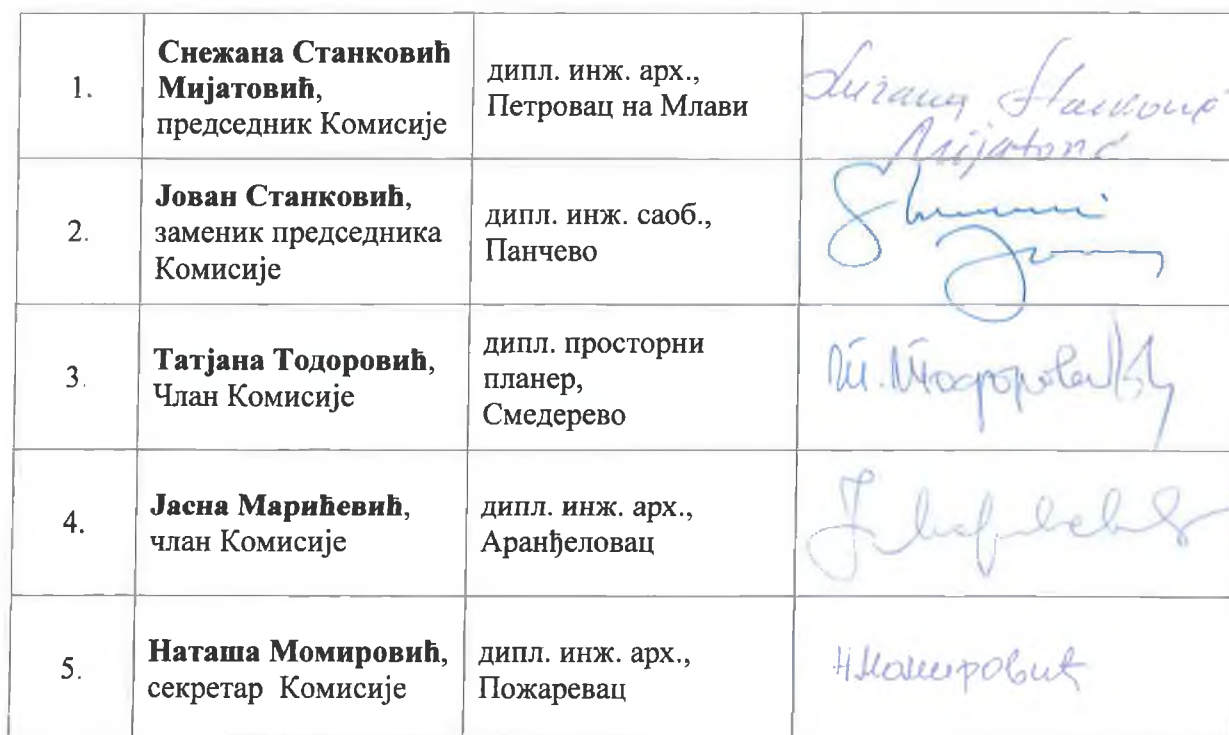 1.
Снежана Станковић
Мијатовић,
председник Комисије
дипл. инж. арх.,
Петровац на Млави
2.
Јован Станковић,
заменик председника
Комисије
дипл. инж. саоб.,
Панчево
3.
Татјана Тодоровић,
Члан Комисије
дипл. просторни
планер,
Смедерево
4.
Јасна Марићевић,
члан Комисије
дипл. инж. арх.,
Аранђеловац
5.
Наташа Момировић,
секретар Комисије
дипл. инж. арх.,
Пожаревац
НМомировић